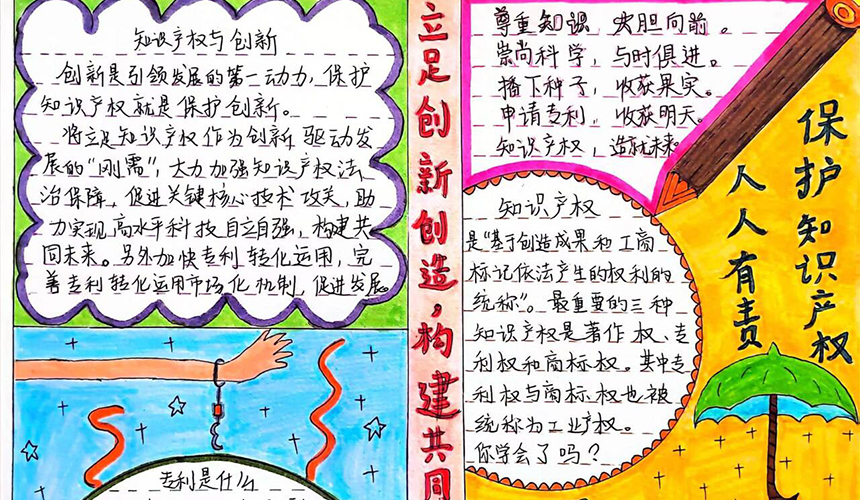 知识产权与创新
创新是引领发展的第一动力,保护
知识产权就是保护创新。
将立足知识产权作为创新驱动发
展的“刚需”,大力加强知识产权法
治保障,促进关键核心技术攻关,助
力实现高水平科技自立自强,构建共
同未来。另外加快专利转化运用,完
善专利转化运用市场化机制,促进发展。
专利是什么
立足创新创造,构建共同
尊重知识,大胆向前。
崇尚科学,与时俱进。
播下种子,收获果实。
申请专利,收获明天。
知识产权,造就未来。
知识产权
是“基于创造成果和工商
标记依法产生的权利的
统称”。最重要的三种
知识产权是著作权、专
利权和商标权。其中专
利权与商标权也被
统称为工业产权。
你学会了吗?
保护知识产权
人人有责